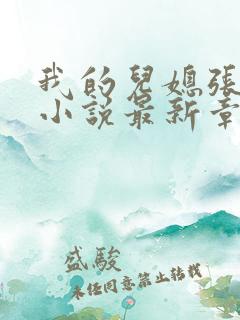 我的兒媳張
小說最新章
盛駿
未經同意禁止轉載